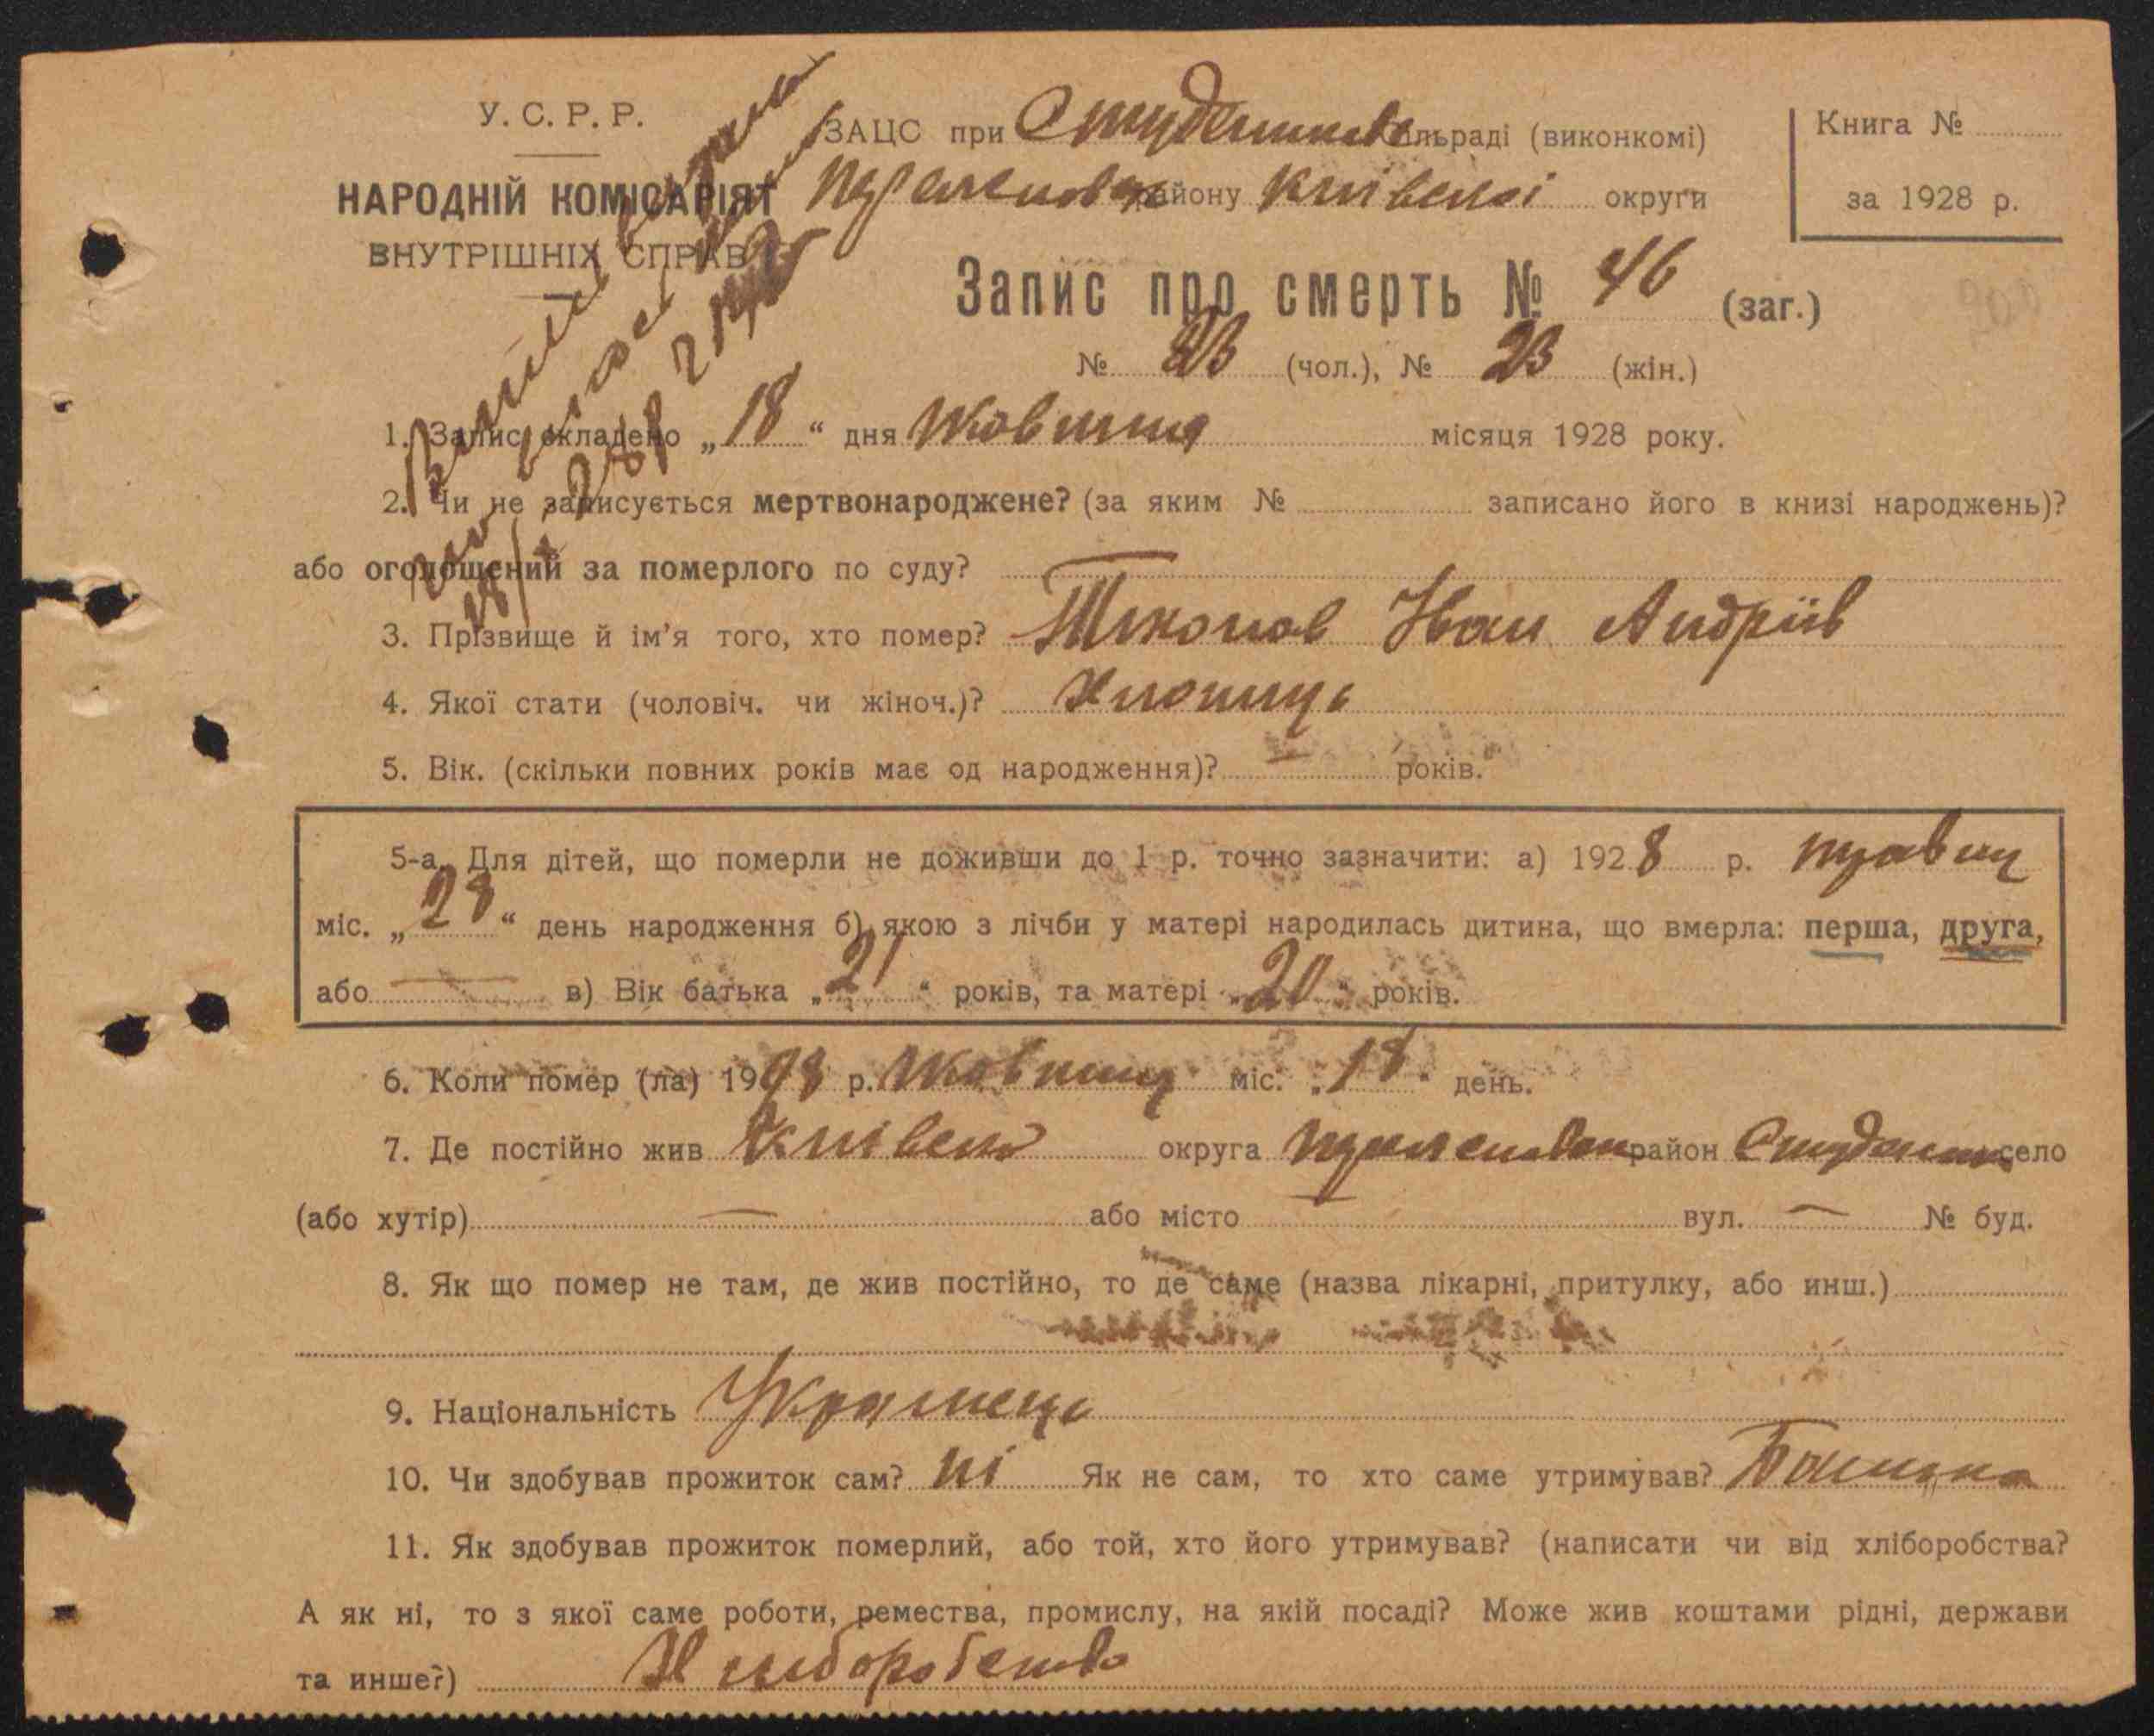 У. С. Р. Р.
НАРОДНІЙ КОМІСАРІЯТ
ВНУТРІШНІХ СПРАВ
ЗАЦС при Студеників сільраді (виконкомі)
району Київської округи
Книга №
за 1928 р.
Запис про смерть № 46 (заг.)
№ 23 (чол.), № 23 (жін.)
1. Запис складено „18“ дня Жовтня місяця 1928 року.
2. Чи не записується мертвонароджене? (за яким № записано його в книзі народжень)?
або оголошений за померлого по суду?
3. Прізвище й ім’я того, хто помер? Іван Андріїв
4. Якої стати (чоловіч. чи жіноч.)? Хлопець
5. Вік. (скільки повних років має од народження)? — років.
5-а. Для дітей, що померли не доживши до 1 р. точно зазначити: а) 1928 р. травня
міс. „28“ день народження б) якою з лічби у матері народилась дитина, що вмерла: перша, друга,
або — в) Вік батька „21“ років, та матері „20“ років.
6. Коли помер (ла) 1928 р. Жовтня міс. „18“ день.
7. Де постійно жив Київськ округа район Студеник село
(або хутір) — або місто — вул. — № буд.
8. Як що помер не там, де жив постійно, то де саме (назва лікарні, притулку, або инш.)
9. Національність Українець
10. Чи здобував прожиток сам? ні Як не сам, то хто саме утримував? Батько
11. Як здобував прожиток померлий, або той, хто його утримував? (написати чи від хліборобства?
А як ні, то з якої саме роботи, ремества, промислу, на якій посаді? Може жив коштами рідні, держави
та инше?) Хліборобство